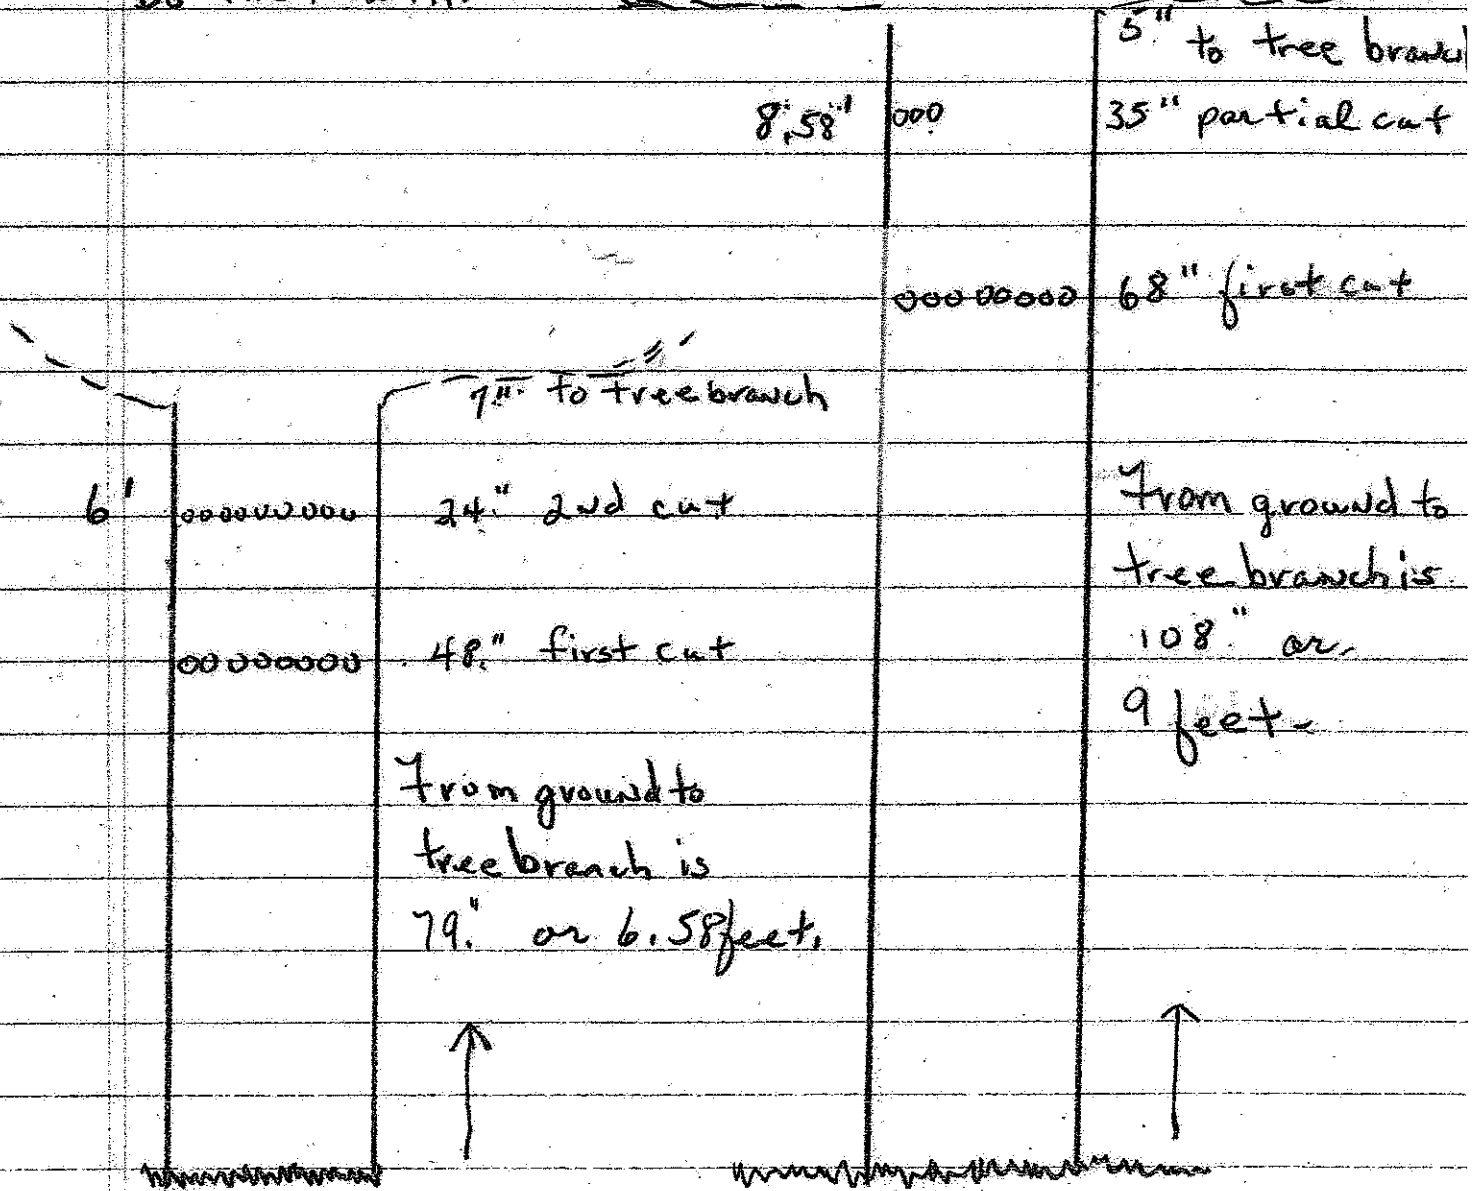 5" to tree branch
8.58' 000 35" partial cut
00000000 68" first cut
7" to tree branch
6' 000000000 24." 2nd cut
00000000 48." first cut
From ground to
tree branch is
108" or
9 feet.
From ground to
tree branch is
79." or 6.58 feet.